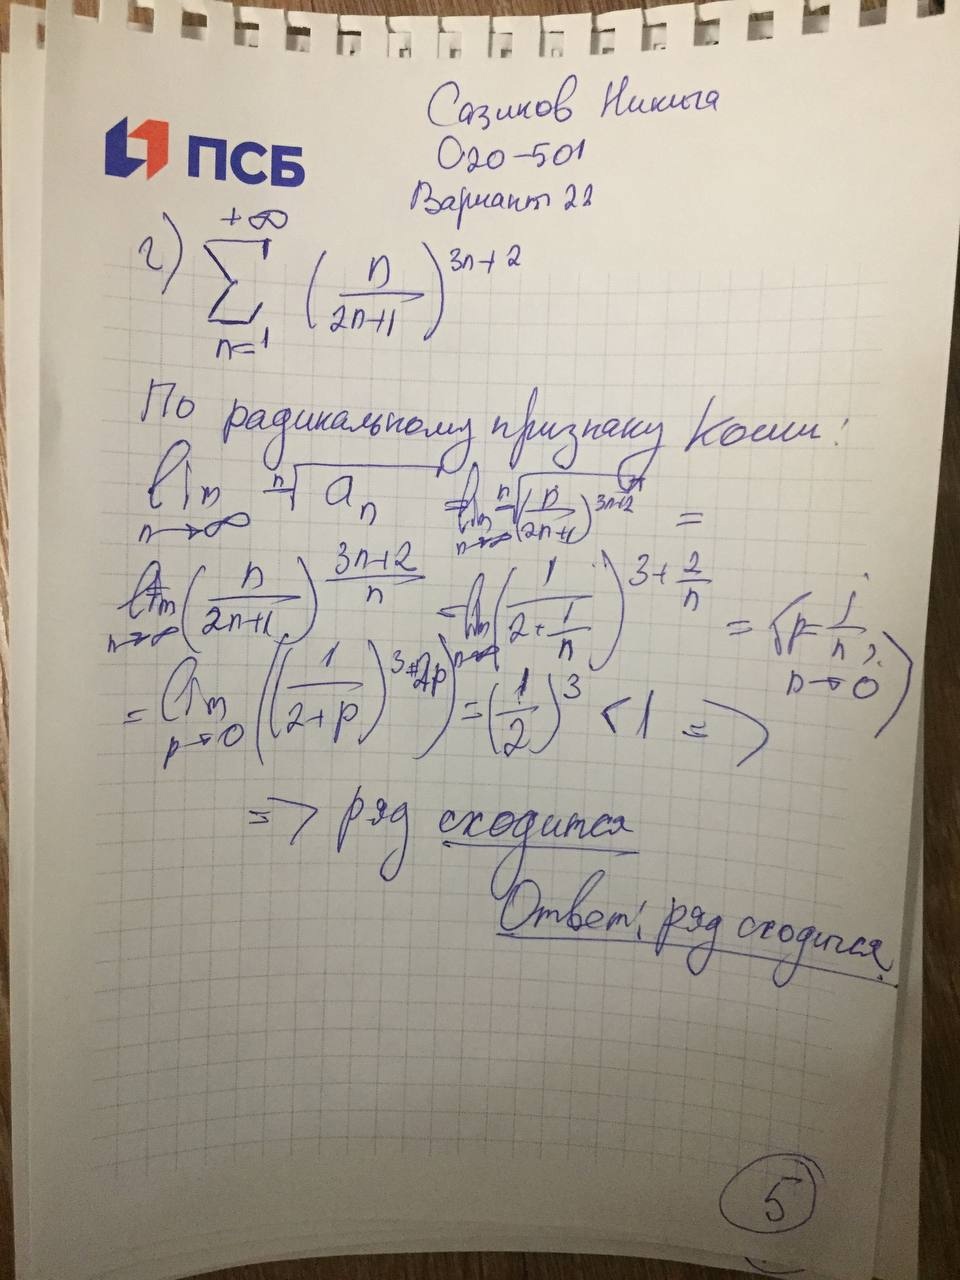 Сазиков Никита
О20-501
ПСБ
Вариант 22
г) +∞ ∑ n=1 (n/(2n+1))^(3n+2)
По радикальному признаку Коши:
lim n→∞ ⁿ√aₙ = lim n→∞ ⁿ√(n/(2n+1))^(3n+2) =
lim n→∞ (n/(2n+1))^((3n+2)/n) = lim n→∞ (1/(2+1/n))^(3+2/n) = (p=1/n; p→0)
= lim p→0 ((1/(2+p))^(3+2p)) = (1/2)^3 < 1 =>
=> ряд сходится
Ответ: ряд сходится.
5